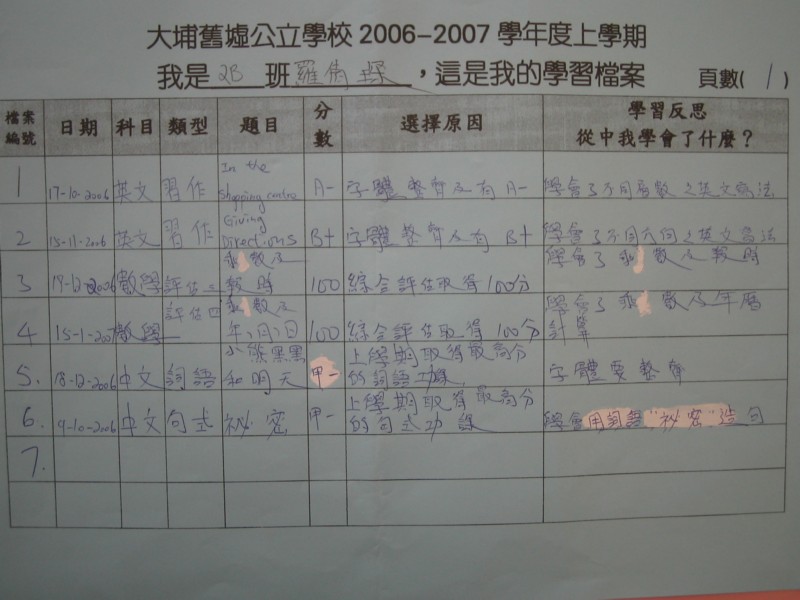 大埔舊墟公立學校 2006-2007 學年度上學期
我是 2B 班 羅 ，這是我的學習檔案 頁數( 1 )
檔案編號 日期 科目 類型 題目 分數 選擇原因 學習反思 從中我學會了什麼？
1 17-10-2006 英文 習作 In the shopping centre A- 字體整齊及有 A- 學會了不同 之英文
2 15-11-2006 英文 習作 Giving Directions B+ 字體整齊及有 B+ 學會了不同方向之英文寫法
3 19-12-2006 數學 評估三 乘數及報時 100 綜合評估取得100分 學會了乘數及報時
4 15-1-2007 數學 評估四 乘數及年,月,日 100 綜合評估取得100分 學會了乘數及年曆計算
5. 18-12-2006 中文 詞語 小熊黑黑和明天 甲- 上學期取得最高分的詞語功課, 字體要整齊
6. 9-10-2006 中文 句式 祕密 甲- 上學期取得最高分的句式功課 學會用詞語"祕密"造句
7.